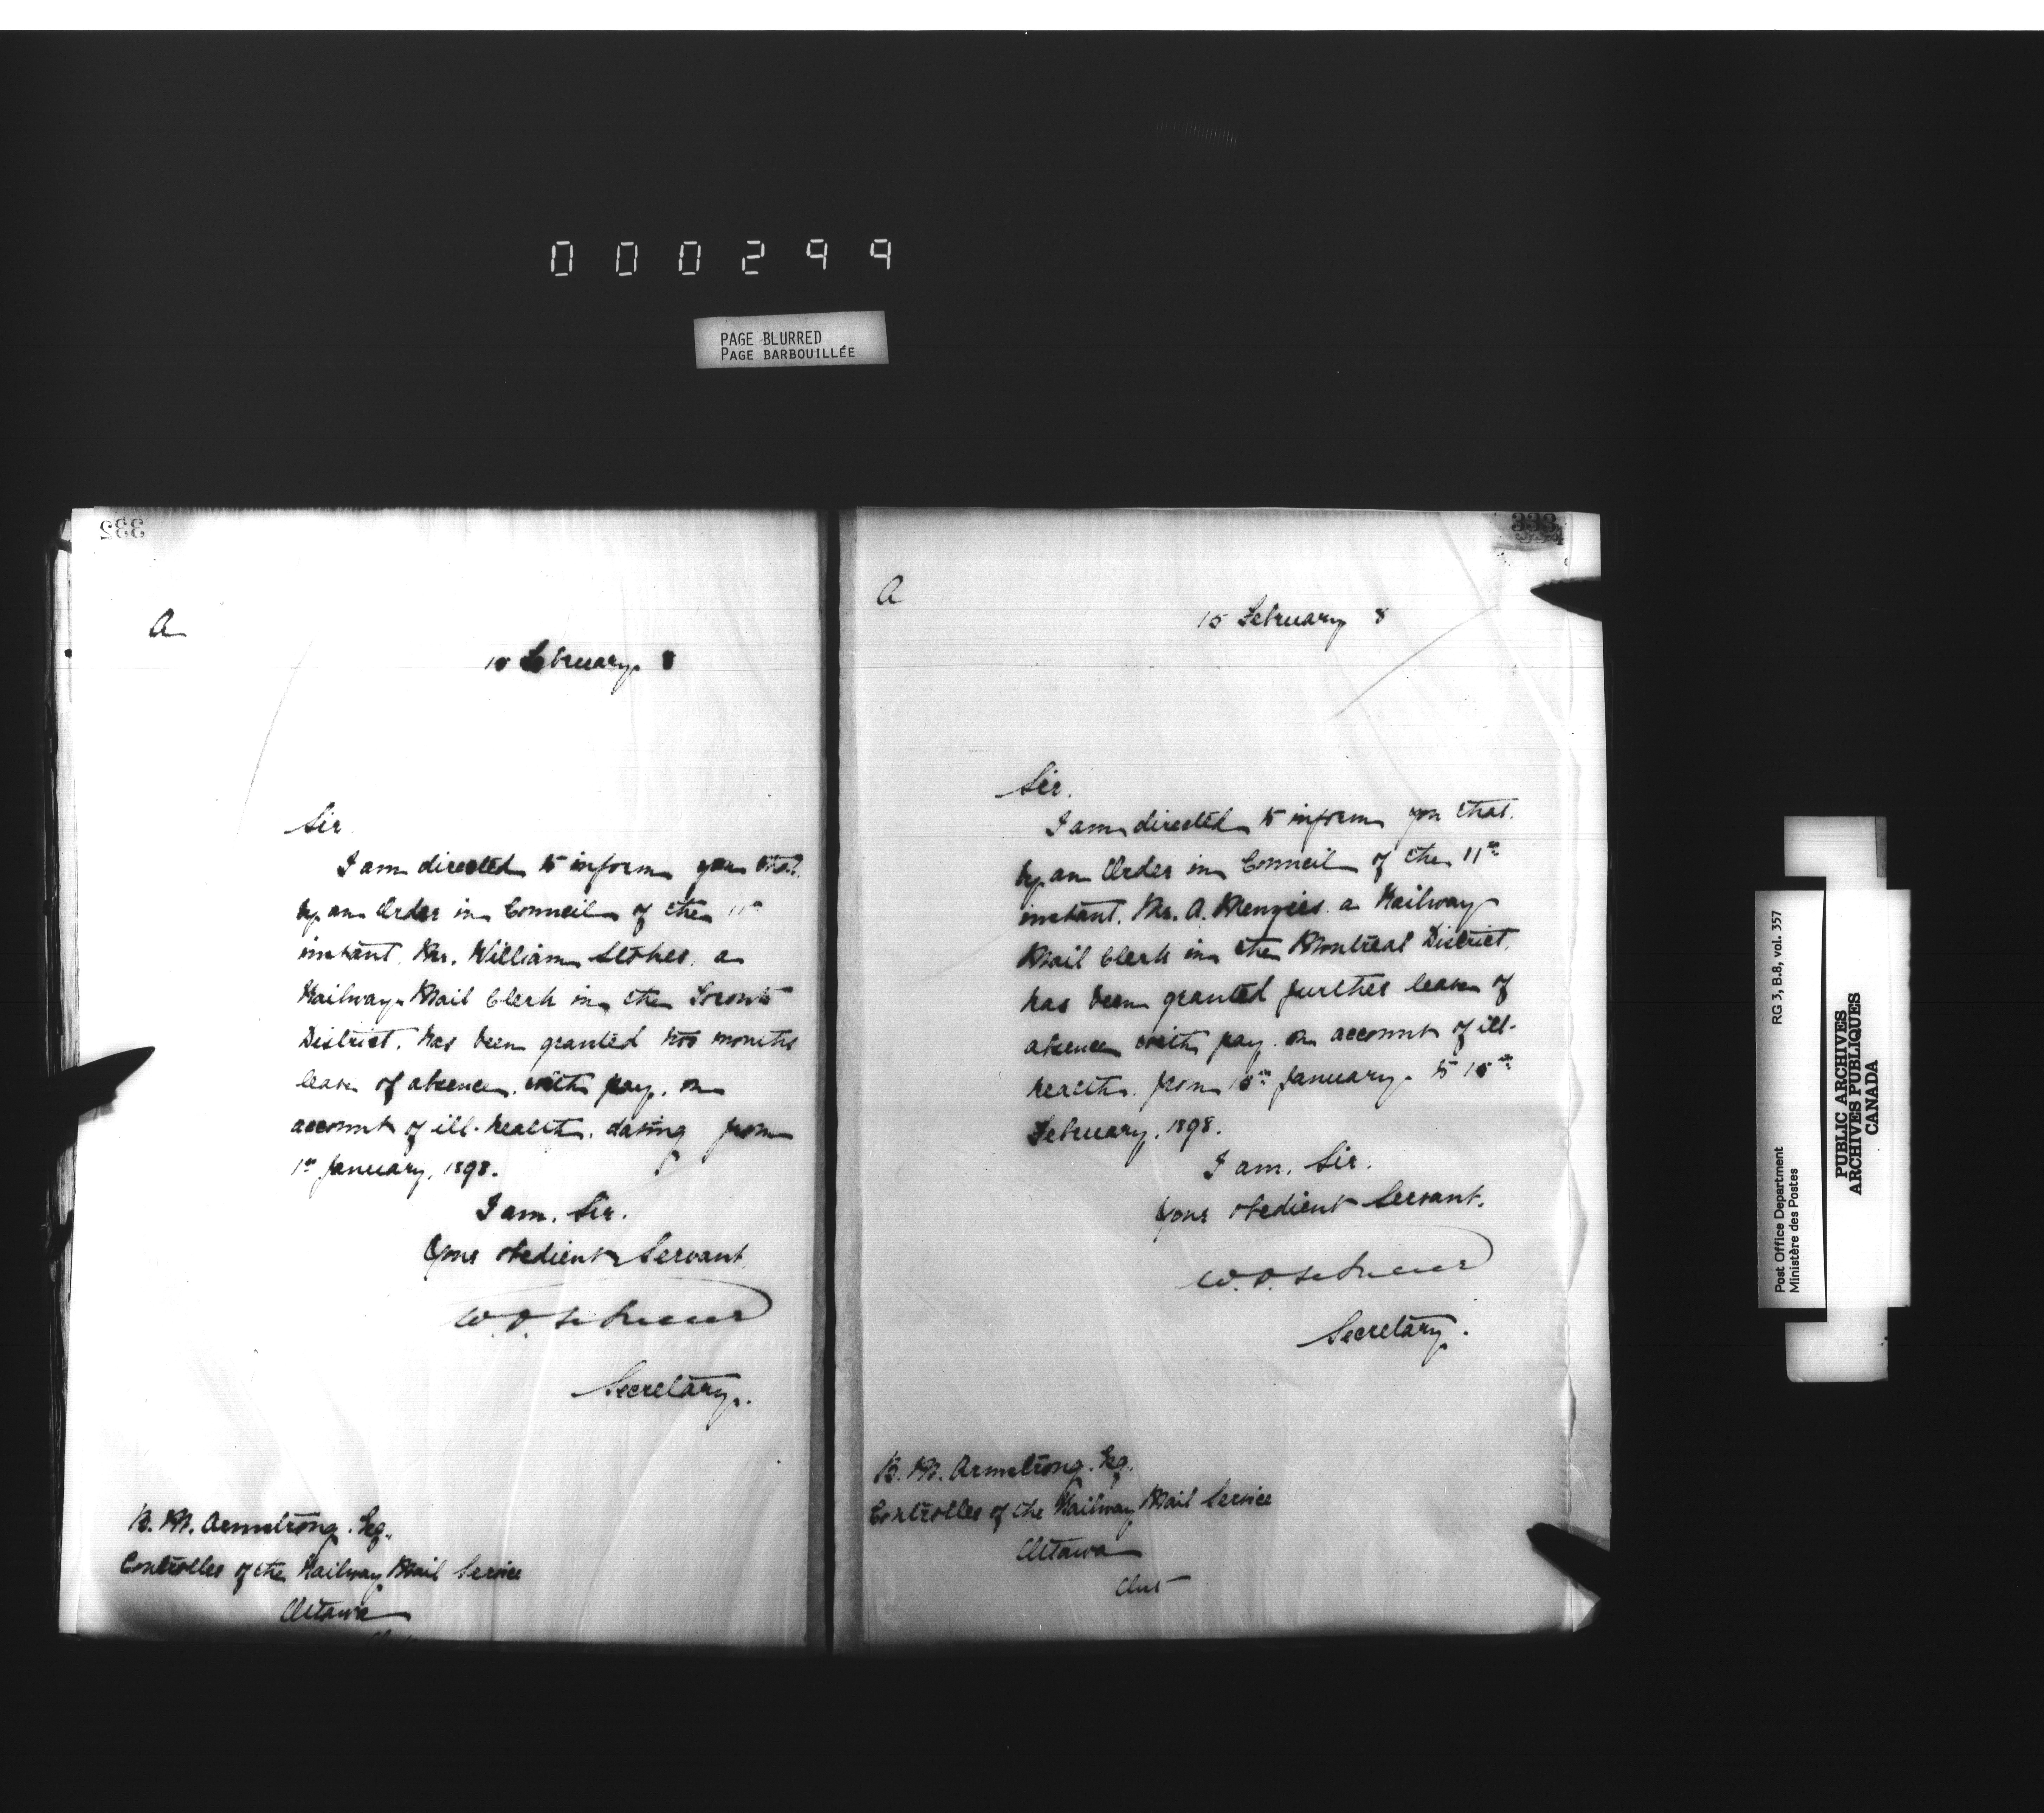 000299
PAGE BLURRED
PAGE BARBOUILLÉE
335
A
15 February 8
Sir
I am directed to inform you that.
by an Order in Council of the 11th
instant. Mr. William Stokes. a
Railway Mail Clerk in the Toronto
District. has been granted two months
leave of absence. with pay. on
account of ill-health. dating from
1st January, 1898.
I am. Sir.
Your obedient Servant
Secretary.
B. M. Armstrong. Esq.
Controller of the Railway Mail Service
Ottawa
333
A
15 February 8
Sir.
I am directed to inform you that.
by an Order in Council of the 11th
instant. Mr. A. Menzies. a Railway
Mail Clerk in the Montreal District.
has been granted further leave of
absence with pay. on account of ill-
health. from 15th January. to 15th
February, 1898.
I am. Sir.
Your obedient Servant.
Secretary.
B. M. Armstrong. Esq.
Controller of the Railway Mail Service
Ottawa
Ont
RG 3, B.8, vol. 357
Post Office Department
Ministère des Postes
PUBLIC ARCHIVES
ARCHIVES PUBLIQUES
CANADA